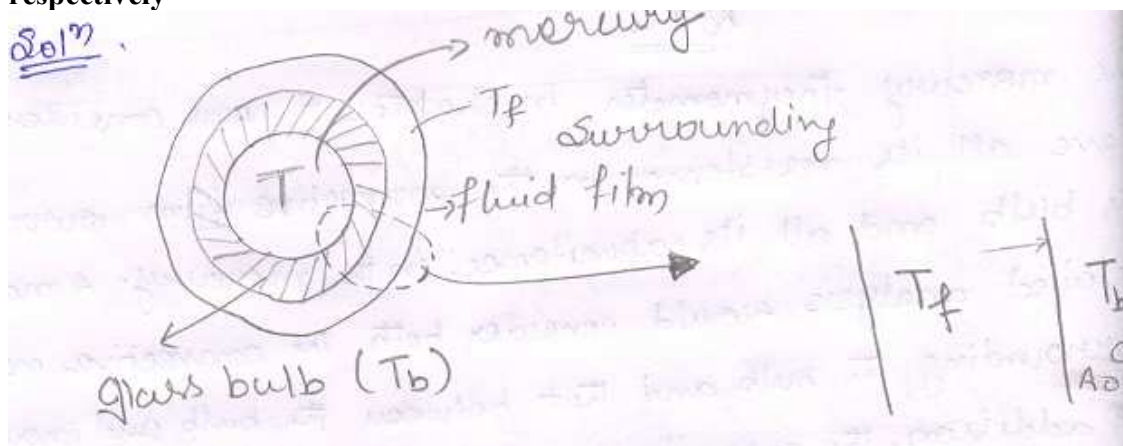 respectively
Solⁿ.
mercury
T_f
Surrounding
T
fluid film
T_f
glass bulb (T_b)